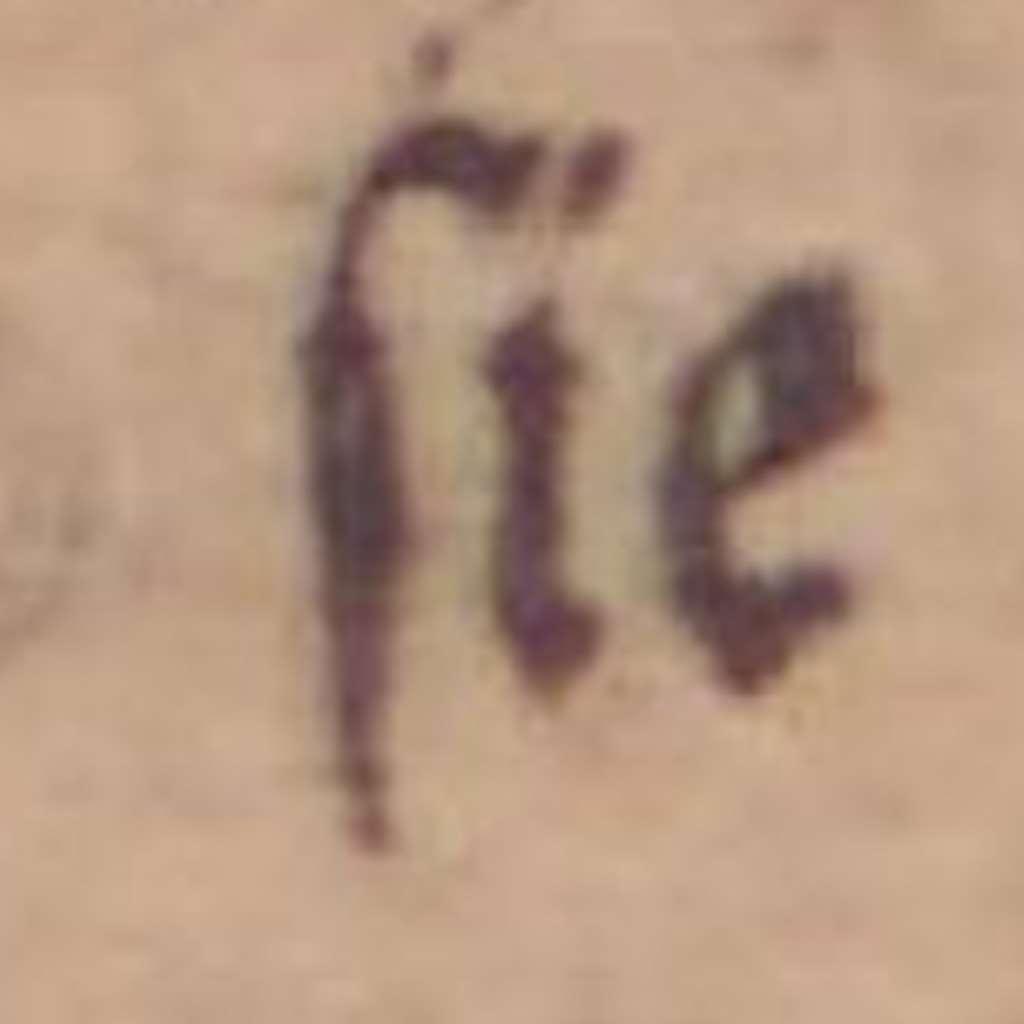 ſie